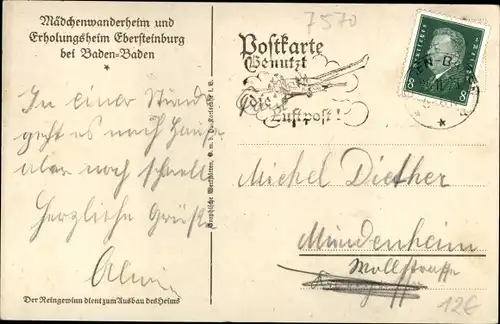 Mädchenwanderheim und
Erholungsheim Ebersteinburg
bei Baden-Baden
*
In einer Stund
geht es nach Hause
aber noch schnell
Herzliche Grüße
Der Reingewinn dient zum Ausbau des Heims
7570
Postkarte
Benutzt
die
Luftpost!
8 8
Michel Diether
Mundenheim
Wollstraße
12€